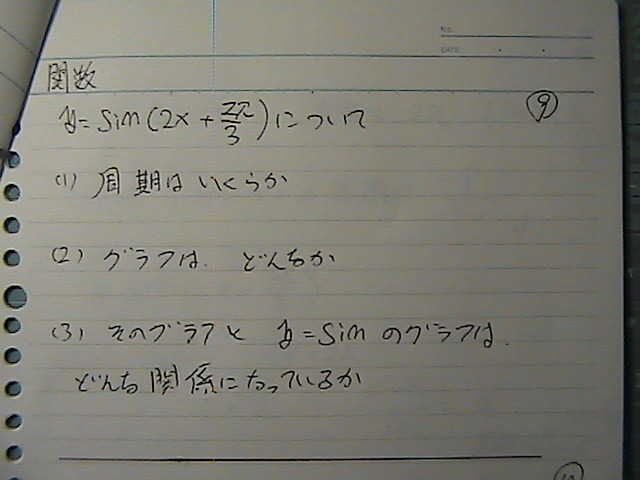 関数
⑨
y=sin(2x+2π/3)について
(1) 周期はいくらか
(2) グラフは. どんなか
(3) そのグラフと y=sinのグラフは.
どんな関係になっているか